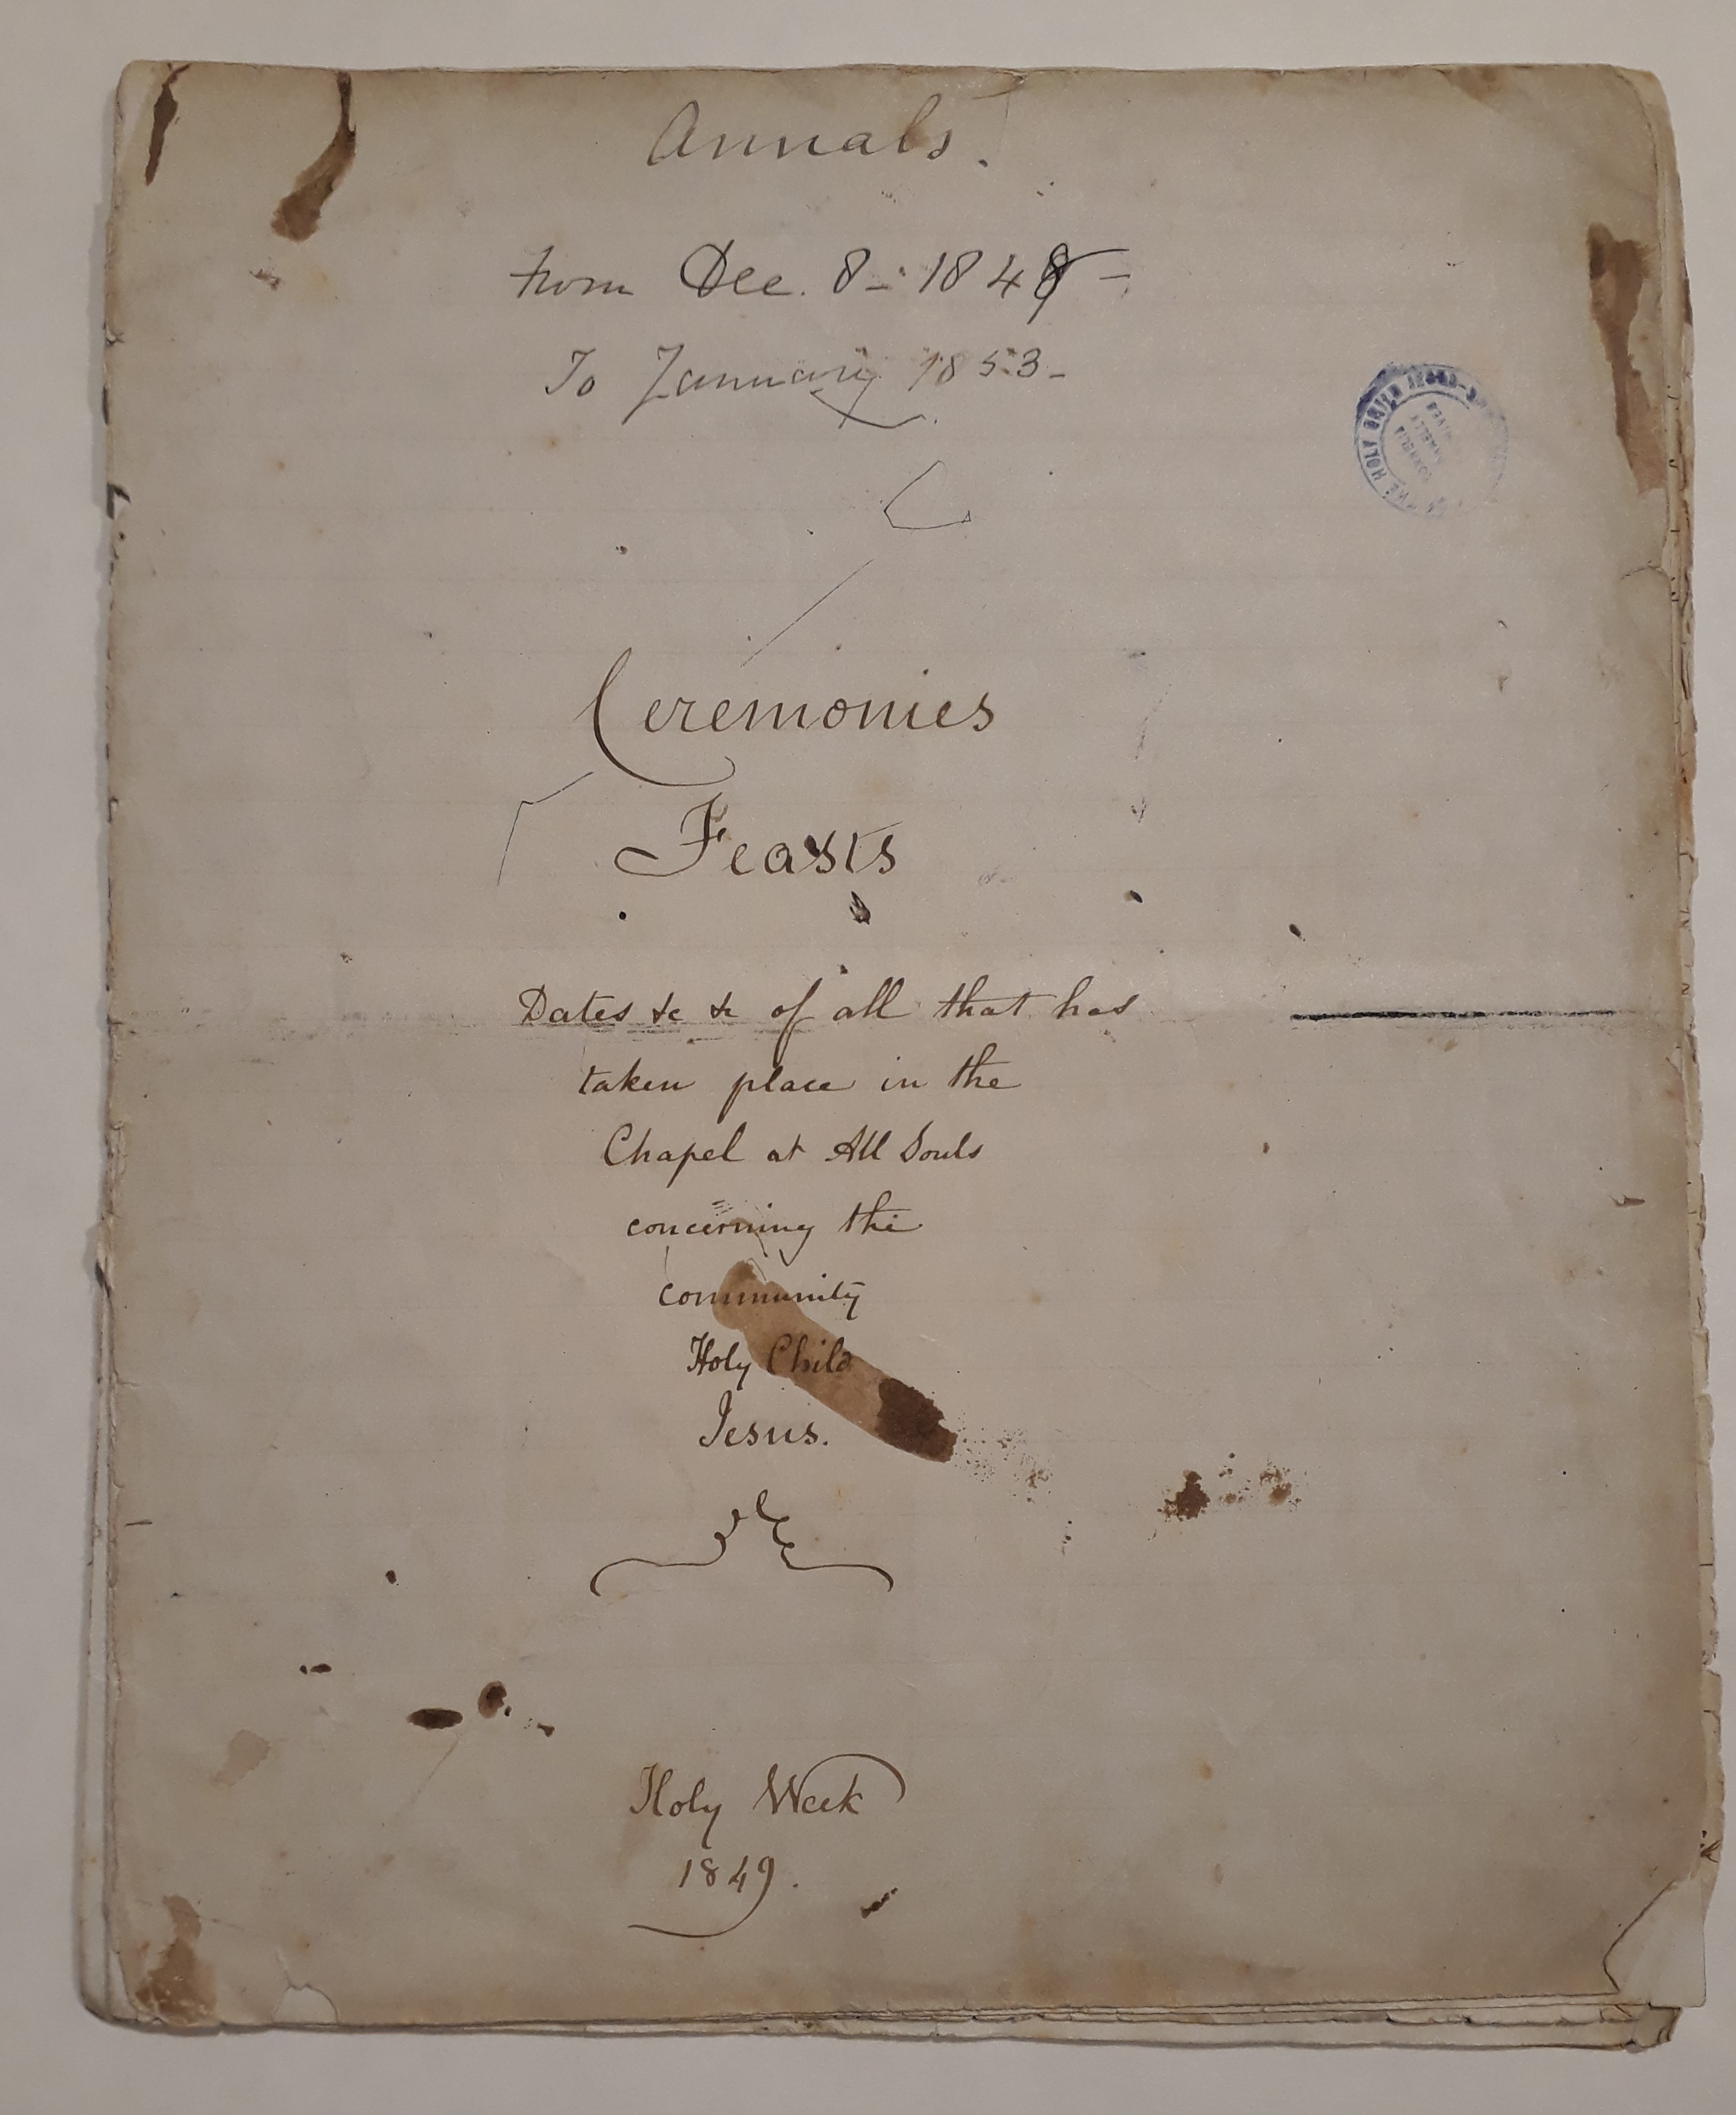 Annals.
From Dec. 8 - 1848 -
To January 1853 -
Ceremonies
Feasts
Dates &c &c of all that has
taken place in the
Chapel at All Souls
concerning the
community
Holy Child
Jesus.
Holy Week
1849.
THE HOLY CHILD JESUS